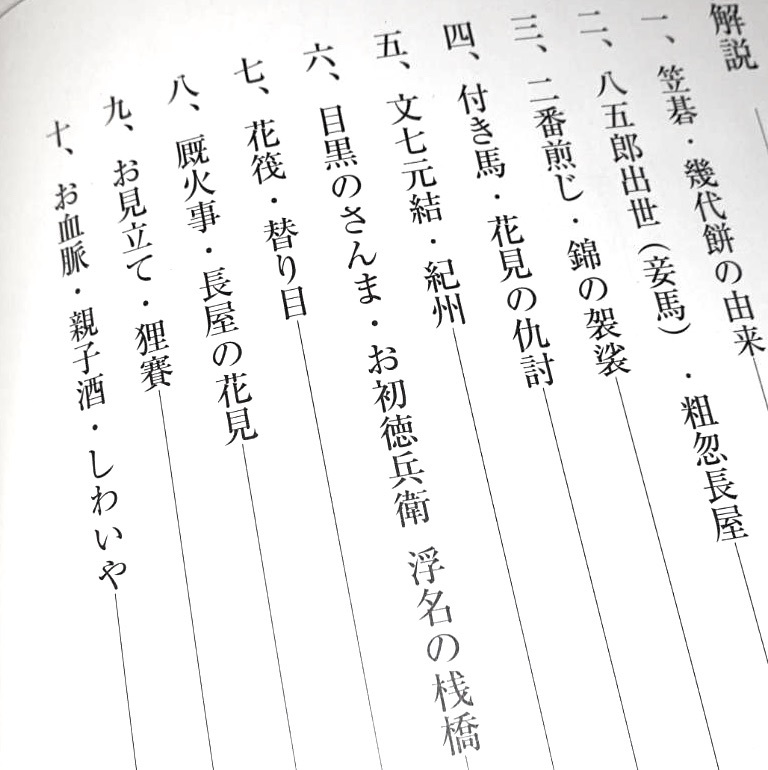 解説
一、笠碁・幾代餅の由来
二、八五郎出世(妾馬)・粗忽長屋
三、二番煎じ・錦の袈裟
四、付き馬・花見の仇討
五、文七元結・紀州
六、目黒のさんま・お初徳兵衛 浮名の桟橋
七、花筏・替り目
八、厩火事・長屋の花見
九、お見立て・狸賽
十、お血脈・親子酒・しわいや